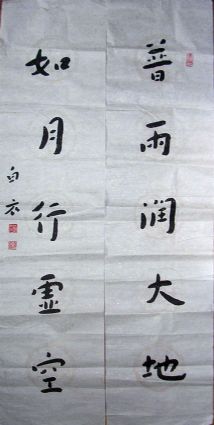 普雨润大地
如月行虚空
白衣